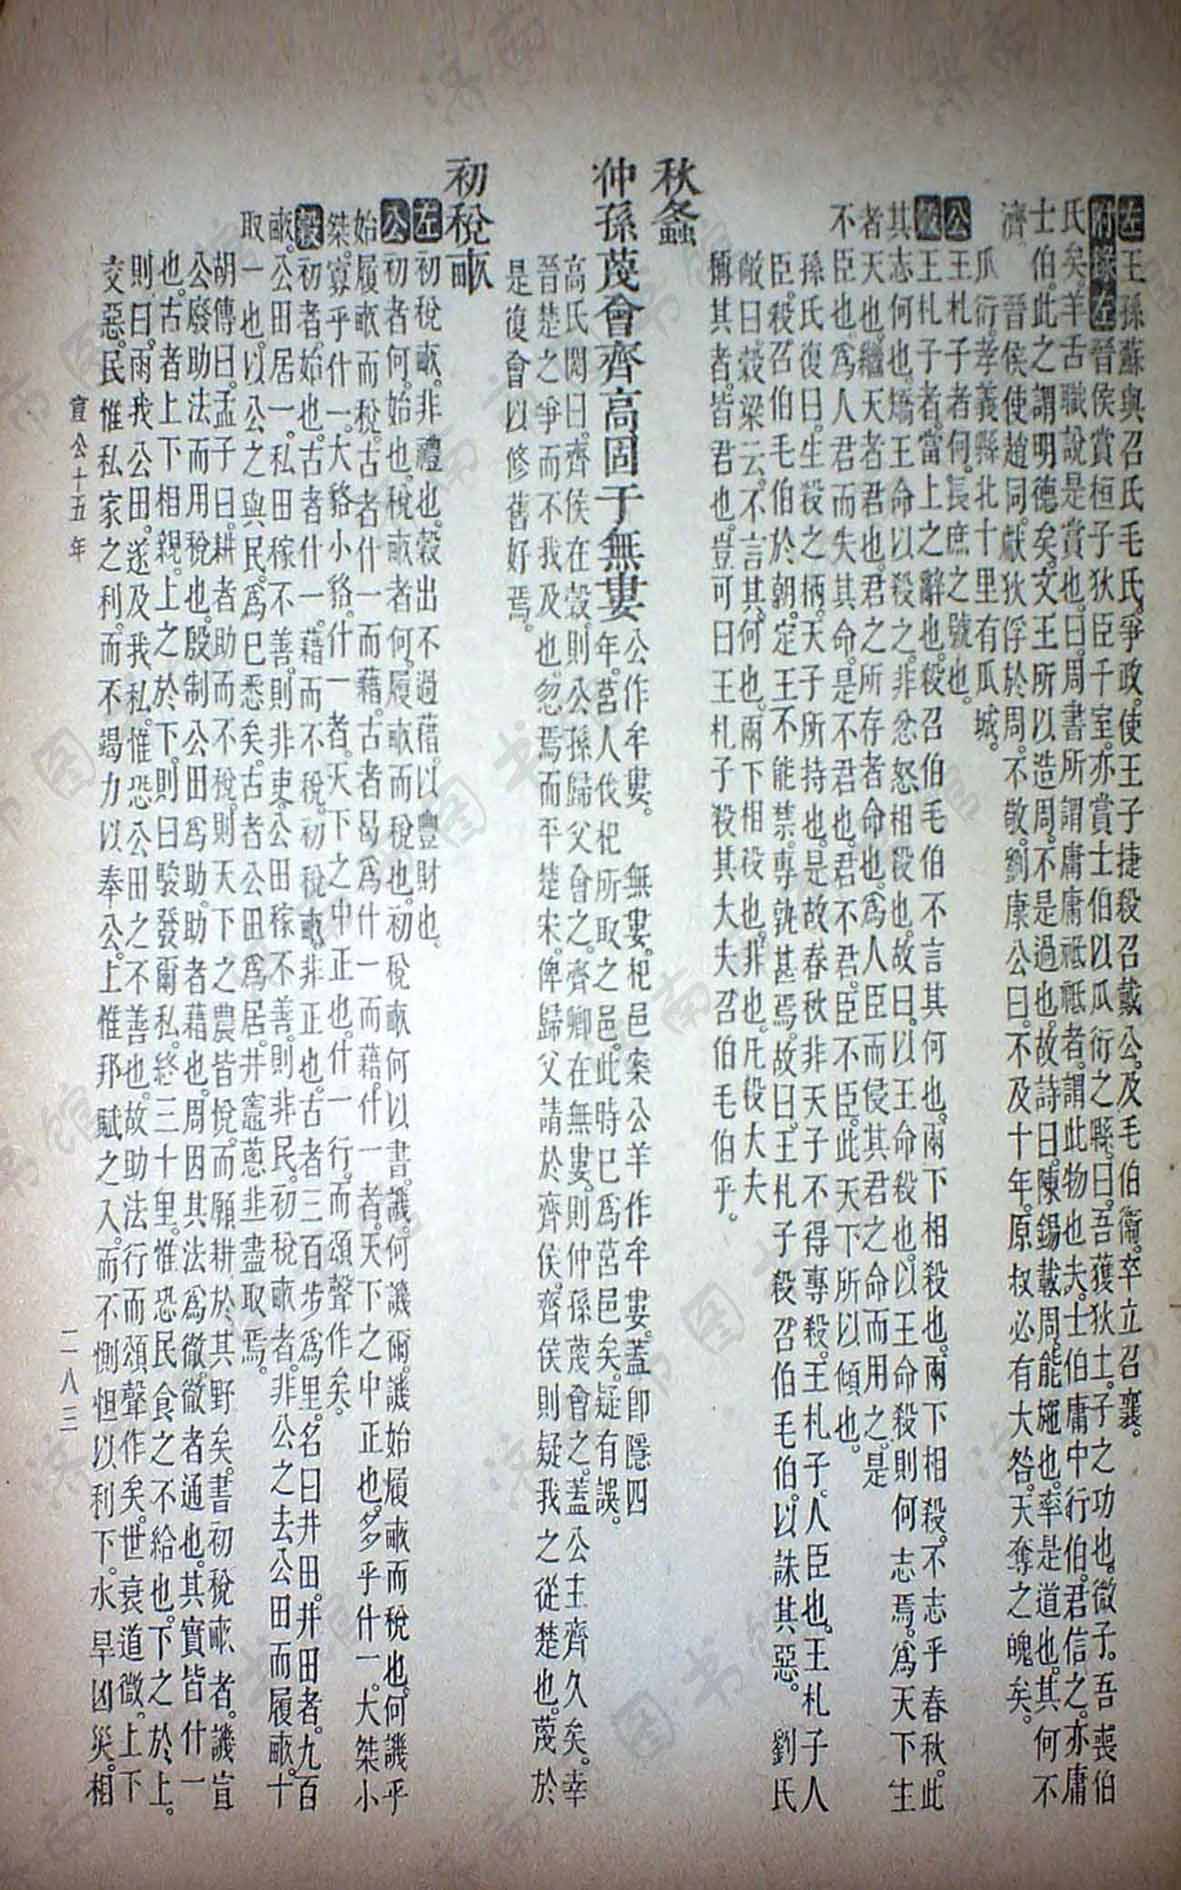 左王孫蘇與召氏毛氏爭政。使王子捷殺召戴公。及毛伯衞。卒立召襄。
附錄左晉侯賞桓子狄臣千室。亦賞士伯以瓜衍之縣。曰。吾獲狄土。子之功也。微子。吾喪伯
氏矣。羊舌職說是賞也。曰。周書所謂庸庸祗祗者。謂此物也夫。士伯庸中行伯。君信之。亦庸
士伯。此之謂明德矣。文王所以造周。不是過也。故詩曰。陳錫載周。能施也。率是道也。其何不
濟 晉侯使趙同。獻狄俘於周。不敬。劉康公曰。不及十年。原叔必有大咎。天奪之魄矣。
瓜衍孝義縣北十里有瓜城。
公王札子者何。長庶之號也。
穀王札子者。當上之辭也。殺召伯毛伯不言其何也。兩下相殺也。兩下相殺。不志乎春秋。此
其志何也。矯王命以殺之。非忿怒相殺也。故曰。以王命殺也。以王命殺則何志焉。爲天下生
者天也。繼天者君也。君之所存者命也。爲人臣而侵其君之命而用之。是
不臣也。爲人君而失其命。是不君也。君不君。臣不臣。此天下所以傾也。
孫氏復曰。生殺之柄。天子所持也。是故春秋非天子不得專殺。王札子。人臣也。王札子人
臣。殺召伯毛伯於朝。定王不能禁。專孰甚焉。故曰。王札子殺召伯毛伯。以誅其惡。 劉氏
敞曰。穀梁云。不言其。何也。兩下相殺也。非也。凡殺大夫
稱其者。皆君也。豈可曰王札子殺其大夫召伯毛伯乎。
秋螽
仲孫蔑會齊高固于無婁公作牟婁。 無婁。杞邑案公羊作牟婁。蓋卽隱四
年。莒人伐杞所取之邑。此時已爲莒邑矣。疑有誤。
高氏閌曰。齊侯在穀。則公孫歸父會之。齊卿在無婁。則仲孫蔑會之。蓋公主齊久矣。幸
晉楚之爭而不我及也。忽焉而平楚宋。俾歸父請於齊侯。齊侯則疑我之從楚也。蔑於
是復會以修舊好焉。
初稅畝
左初稅畝。非禮也。穀出不過藉。以豐財也。
公初者何。始也。稅畝者何。履畝而稅也。初稅畝何以書。譏。何譏爾。譏始履畝而稅也。何譏乎
始履畝而稅。古者什一而藉。古者曷爲什一而藉。什一者。天下之中正也。多乎什一。大桀小
桀。寡乎什一。大貉小貉。什一者。天下之中正也。什一行。而頌聲作矣。
穀初者。始也。古者什一。藉而不稅。初稅畝。非正也。古者三百步爲里。名曰井田。井田者。九百
畝。公田居一。私田稼不善。則非吏。公田稼不善。則非民。初稅畝者。非公之去公田而履畝。十
取一也。以公之與民。爲已悉矣。古者公田爲居。井竈蔥韭盡取焉。
胡傳曰。孟子曰。耕者助而不稅。則天下之農皆悅。而願耕於其野矣。書初稅畝者。譏宣
公廢助法而用稅也。殷制公田爲助。助者藉也。周因其法爲徹。徹者通也。其實皆什一
也。古者上下相親。上之於下。則曰駿發爾私。終三十里。惟恐民食之不給也。下之於上。
則曰。雨我公田。遂及我私。惟恐公田之不善也。故助法行而頌聲作矣。世衰道微。上下
交惡。民惟私家之利。而不竭力以奉公。上惟邦賦之入。而不惻怛以利下。水旱凶災。相
宣公十五年 二八三